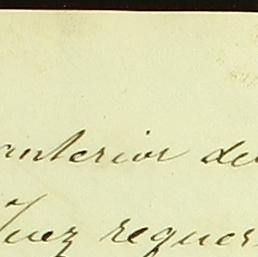 anterior de
Juez requer